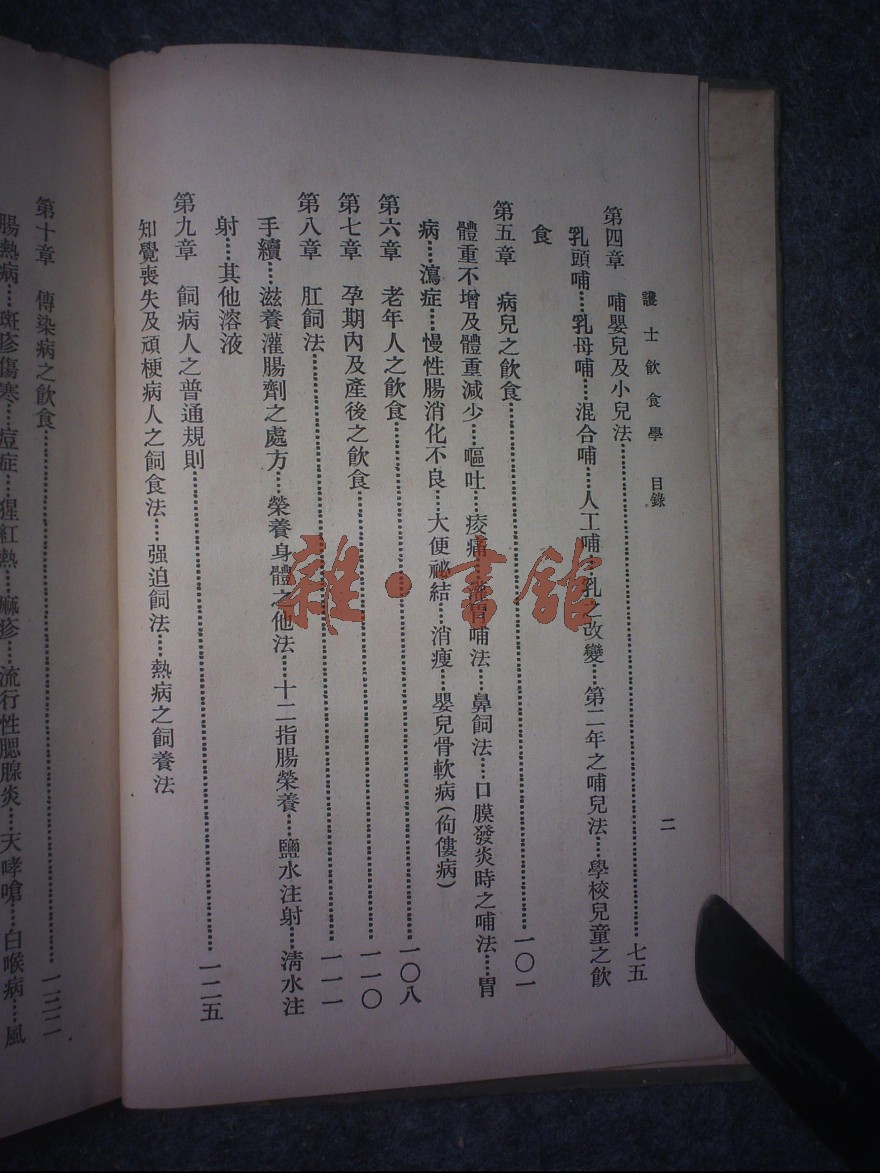 護士飲食學 目錄
二
第四章 哺嬰兒及小兒法……七五
乳頭哺……乳母哺……混合哺……人工哺……乳之改變……第二年之哺兒法……學校兒童之飲
食
第五章 病兒之飲食……一〇一
體重不增及體重減少……嘔吐……痠痛……灌胃哺法……鼻飼法……口膜發炎時之哺法……胃
病……瀉症……慢性腸消化不良……大便祕結……消瘦……嬰兒骨軟病(佝僂病)
第六章 老年人之飲食……一〇八
第七章 孕期內及產後之飲食……一一〇
第八章 肛飼法……一一一
手續……滋養灌腸劑之處方……榮養身體之他法……十二指腸榮養……鹽水注射……清水注
射……其他溶液
第九章 飼病人之普通規則……一二五
知覺喪失及頑梗病人之飼食法……强迫飼法……熱病之飼養法
第十章 傳染病之飲食……一三二
腸熱病……斑疹傷寒……痘症……猩紅熱……麻疹……流行性腮腺炎……天哮嗆……白喉病……風
雜·書舘